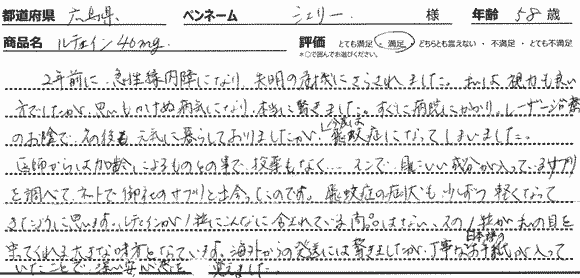 都道府県 広島県 ペンネーム シェリー 様 年齢 58歳
商品名 ルテイン40mg. 評価 とても満足・満足・どちらとも言えない・不満足・とても不満足
*○で囲んでお選びください。
2年前に、急性緑内障になり、失明の危機にさらされました。私は視力も良い
方でしたが、思いもかけぬ病気になり、本当に驚きました。すぐに病院にかかり、レーザー治療
のお陰で、その後も元気に暮らしておりましたが、今度は飛蚊症になってしまいました。
医師からは加齢によるものとの事で、投薬もなく… そこで、目にいい成分が入っているサプリ
を調べて、ネットで御社のサプリと出会ったのです。飛蚊症の症状も少しずつ軽くなって
きたように思います。ルテインが1粒にこんなに含まれている商品はない、その1粒が私の目を
守ってくれる大きな味方となっています。海外からの発送には驚きましたが、丁寧な日本語のお手紙が入って
いたことで、深い安心感を覚えました。